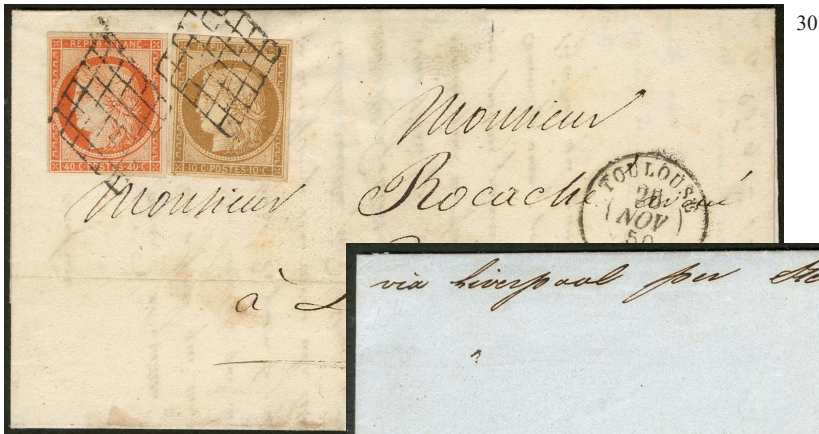 30
REPUB. FRANC.
40 C. POSTES. 40 C.
10 C. POSTES 10 C.
Monsieur
Monsieur Rocache avoué
à
TOULOUSE
NOV
50
via Liverpool per